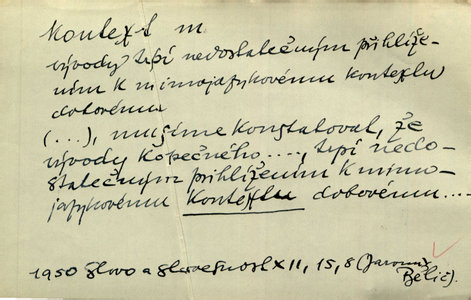 Kontext m
vývody trpí nedostatečným přihlíže-
ním k mimojazykovému kontextu
dobovému
(...), musíme konstatovat, že
vývody Kopečného...., trpí nedo-
statečným přihlížením k mimo-
jazykovému kontextu dobovému....
1950 Slovo a slovesnost XII, 15, 8 (Jaromír
Bělič).